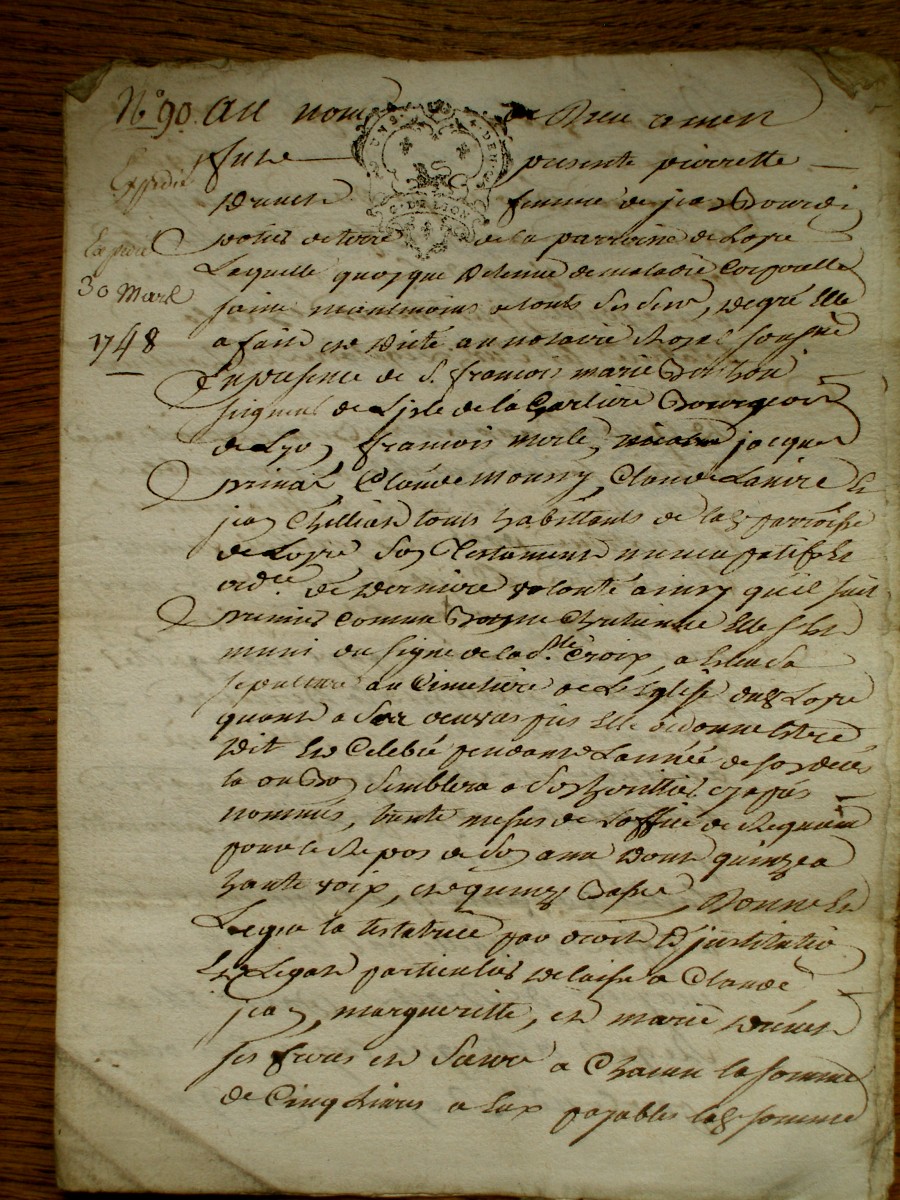 N.° 90. au nom de Dieu amen
fust presente pierrette
femme de jean Bourdi
potier de terre de la parroisse de Loyre
Laquelle quoyque detenue de maladie corporelle
saine neantmoins a touts ses sens, de gré Elle
a fait et dicté au notaire Royal soussigné
En presence de S. francois marie
seigneur de L'isle de la Bourgeois
de Lyon francois jacques
Claude Moussy, Claude et
jean touts habittants de lad. parroisse
de Loyre son Testament nuncupatif et
ord.ce de derniere volonté ainsy qu'il suit
premier comme Bonne Chretienne Elle s'est
muni du signe de la S.te Croix, a Eleu sa
sepulture au Cimetiere de L'Eglise dud. Loyre
quant a ses oeuvres pies Elle a donne estre
dit et Celebré pendant L'année de son deces
la ou Bon Semblera a son heritier cy apres
nommés, trente messes de L'office de Requiem
pour le Repos de son ame dont quinze a
haute voix, et quinze Basse, Donne et
Legue la testatrice par droit D'institution
et Legat particulier delaisse a Claude
jean, margueritte, et marie
ses freres et Soeurs a Chacun la somme
de Cinq Livres a Eux payables lad. somme
Expedié
Expedié
30 Mars
1748